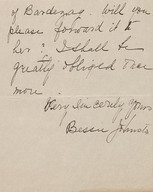 of Bardezag. Will you
please forward it to
her? I shall be
greatly obliged once
more.
Very Sincerely yours
Bessie